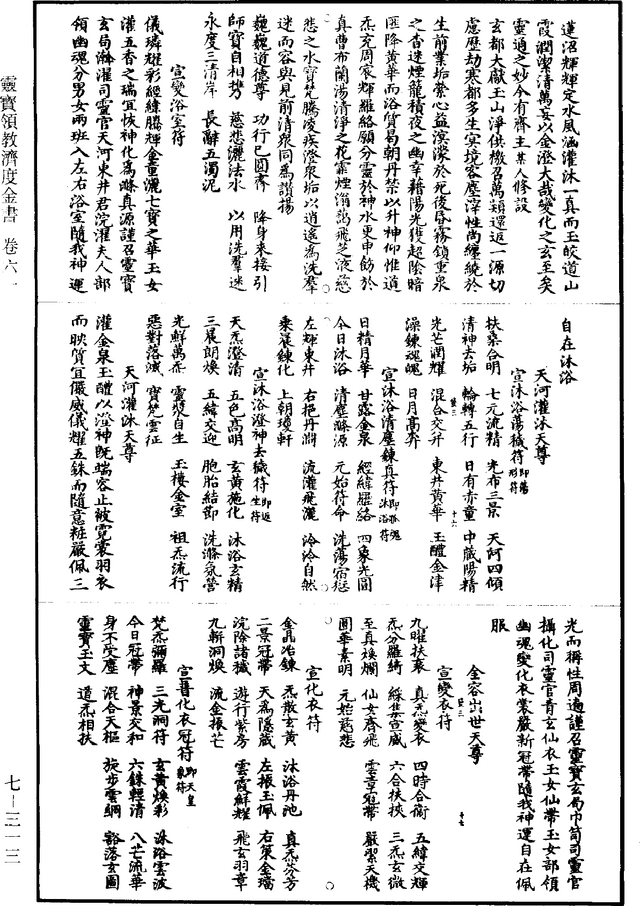 蓮沼輝輝定水風涵灌沐一真而玉皎道山
霞澗潔清萬妄以金澄大哉變化之玄至矣
靈通之妙今有齋主某人修設
玄都大獻玉山淨供檄召萬類還返一源切
慮歷劫寒都多生冥境客塵滓性尚纏繞於
生前業垢縈心益濛濛於死後昏霧鎖重泉
之杳迷煙籠積夜之幽幸藉陽光獲超陰暗
匪降黃華而浴質曷朝丹禁以升神仰惟道
炁充周宸輝羅絡願分靈於神水更申飭於
真曹布蘭湯清淨之花靄煙滃飛芝液慈
悲之水寶梵騰凌疾澄衆垢以逍遙爲洗羣
迷而容與見前清衆同爲讚揚
巍巍道德尊　功行已圓齊　降身來接引
師寶自相攜　慈悲灑法水　以用洗羣迷
永度三清岸　長辭五濁泥
宣變浴室符
儀璘耀彩經緯騰輝金童灑七寶之華玉女
灌五香之瑞宜恢神化爲滌真源謹召靈寶
玄局澣濯司靈官天河東井君浣濯夫人部
領幽魂分男女兩班入左右浴室隨我神運
自在沐浴
天河灌沐天尊
宣沐浴蕩穢符即蕩形符
扶桑合明　七元流精　光布三景　天河四傾
清神去垢　輪轉五行　日有赤童　中藏陽精
光芒潤耀　混合交升　東井黃華　玉醴金津
澡鍊魂魄　日月高奔
宣沐浴清塵鍊真符即沐浴符
日精月華　甘露金泉　經緯羅絡　四象光圓
今日沐浴　清塵滌源　元始符命　洗蕩宿愆
左輝東井　右挹丹淵　流灌飛灑　泠泠自然
乘晨鍊化　上朝瓊軒
宣沐浴澄神去穢符即返生符
天炁澄清　五色高明　玄黃施化　沐浴玄精
三晨朗煥　五緯交迎　胞胎結節　洗滌氛營
光鮮萬炁　靈漿自生　玉樓金室　祖炁流行
惡對落滅　寶梵雲征
天河灌沐天尊
灌金泉玉醴以澄神既端容止被霓裳羽衣
而映質宜儼威儀耀五銖而隨意粧嚴佩三
光而稱性周遍謹召靈寶玄局巾笥司靈官
攝化司靈官青玄仙衣玉女仙帶玉女部領
幽魂變化衣裳嚴新冠帶隨我神運自在佩
服
金容出世天尊
宣變衣符
九曜扶衰　真炁變衣　四時合衡　五緯交輝
炁分羅綺　綵集宣威　六合扶挾　三炁玄微
至真煥爛　仙女齊飛　雲章冠帶　嚴潔天機
圓華素明　元始慈悲
宣化衣符
金晶冶鍊　炁散玄黃　沐浴丹池　真炁芬芳
二景冠帶　天爲隱藏　左振玉佩　右策金璫
浣除諸穢　遊行紫房　雲霞鮮耀　飛玄羽章
九斬洞煥　流金振芒
宣普化衣冠符即天皇象符
梵炁彌羅　三光洞符　玄黃煥彩　洙浴雲波
今日冠帶　神景交和　六銖輕清　八芒流華
身不受塵　混合天樞　旋步雲綱　豁落玄圖
靈寶玉文　道炁相扶
靈寶領教濟度金書　卷六一
七—三一三